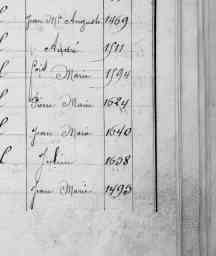 Jean Me. Auguste 1469
l André 1511
l Marie 1594
Pierre Marie 1624
l Jean Marie 1640
l Julien 1608
Jean Marie 1495